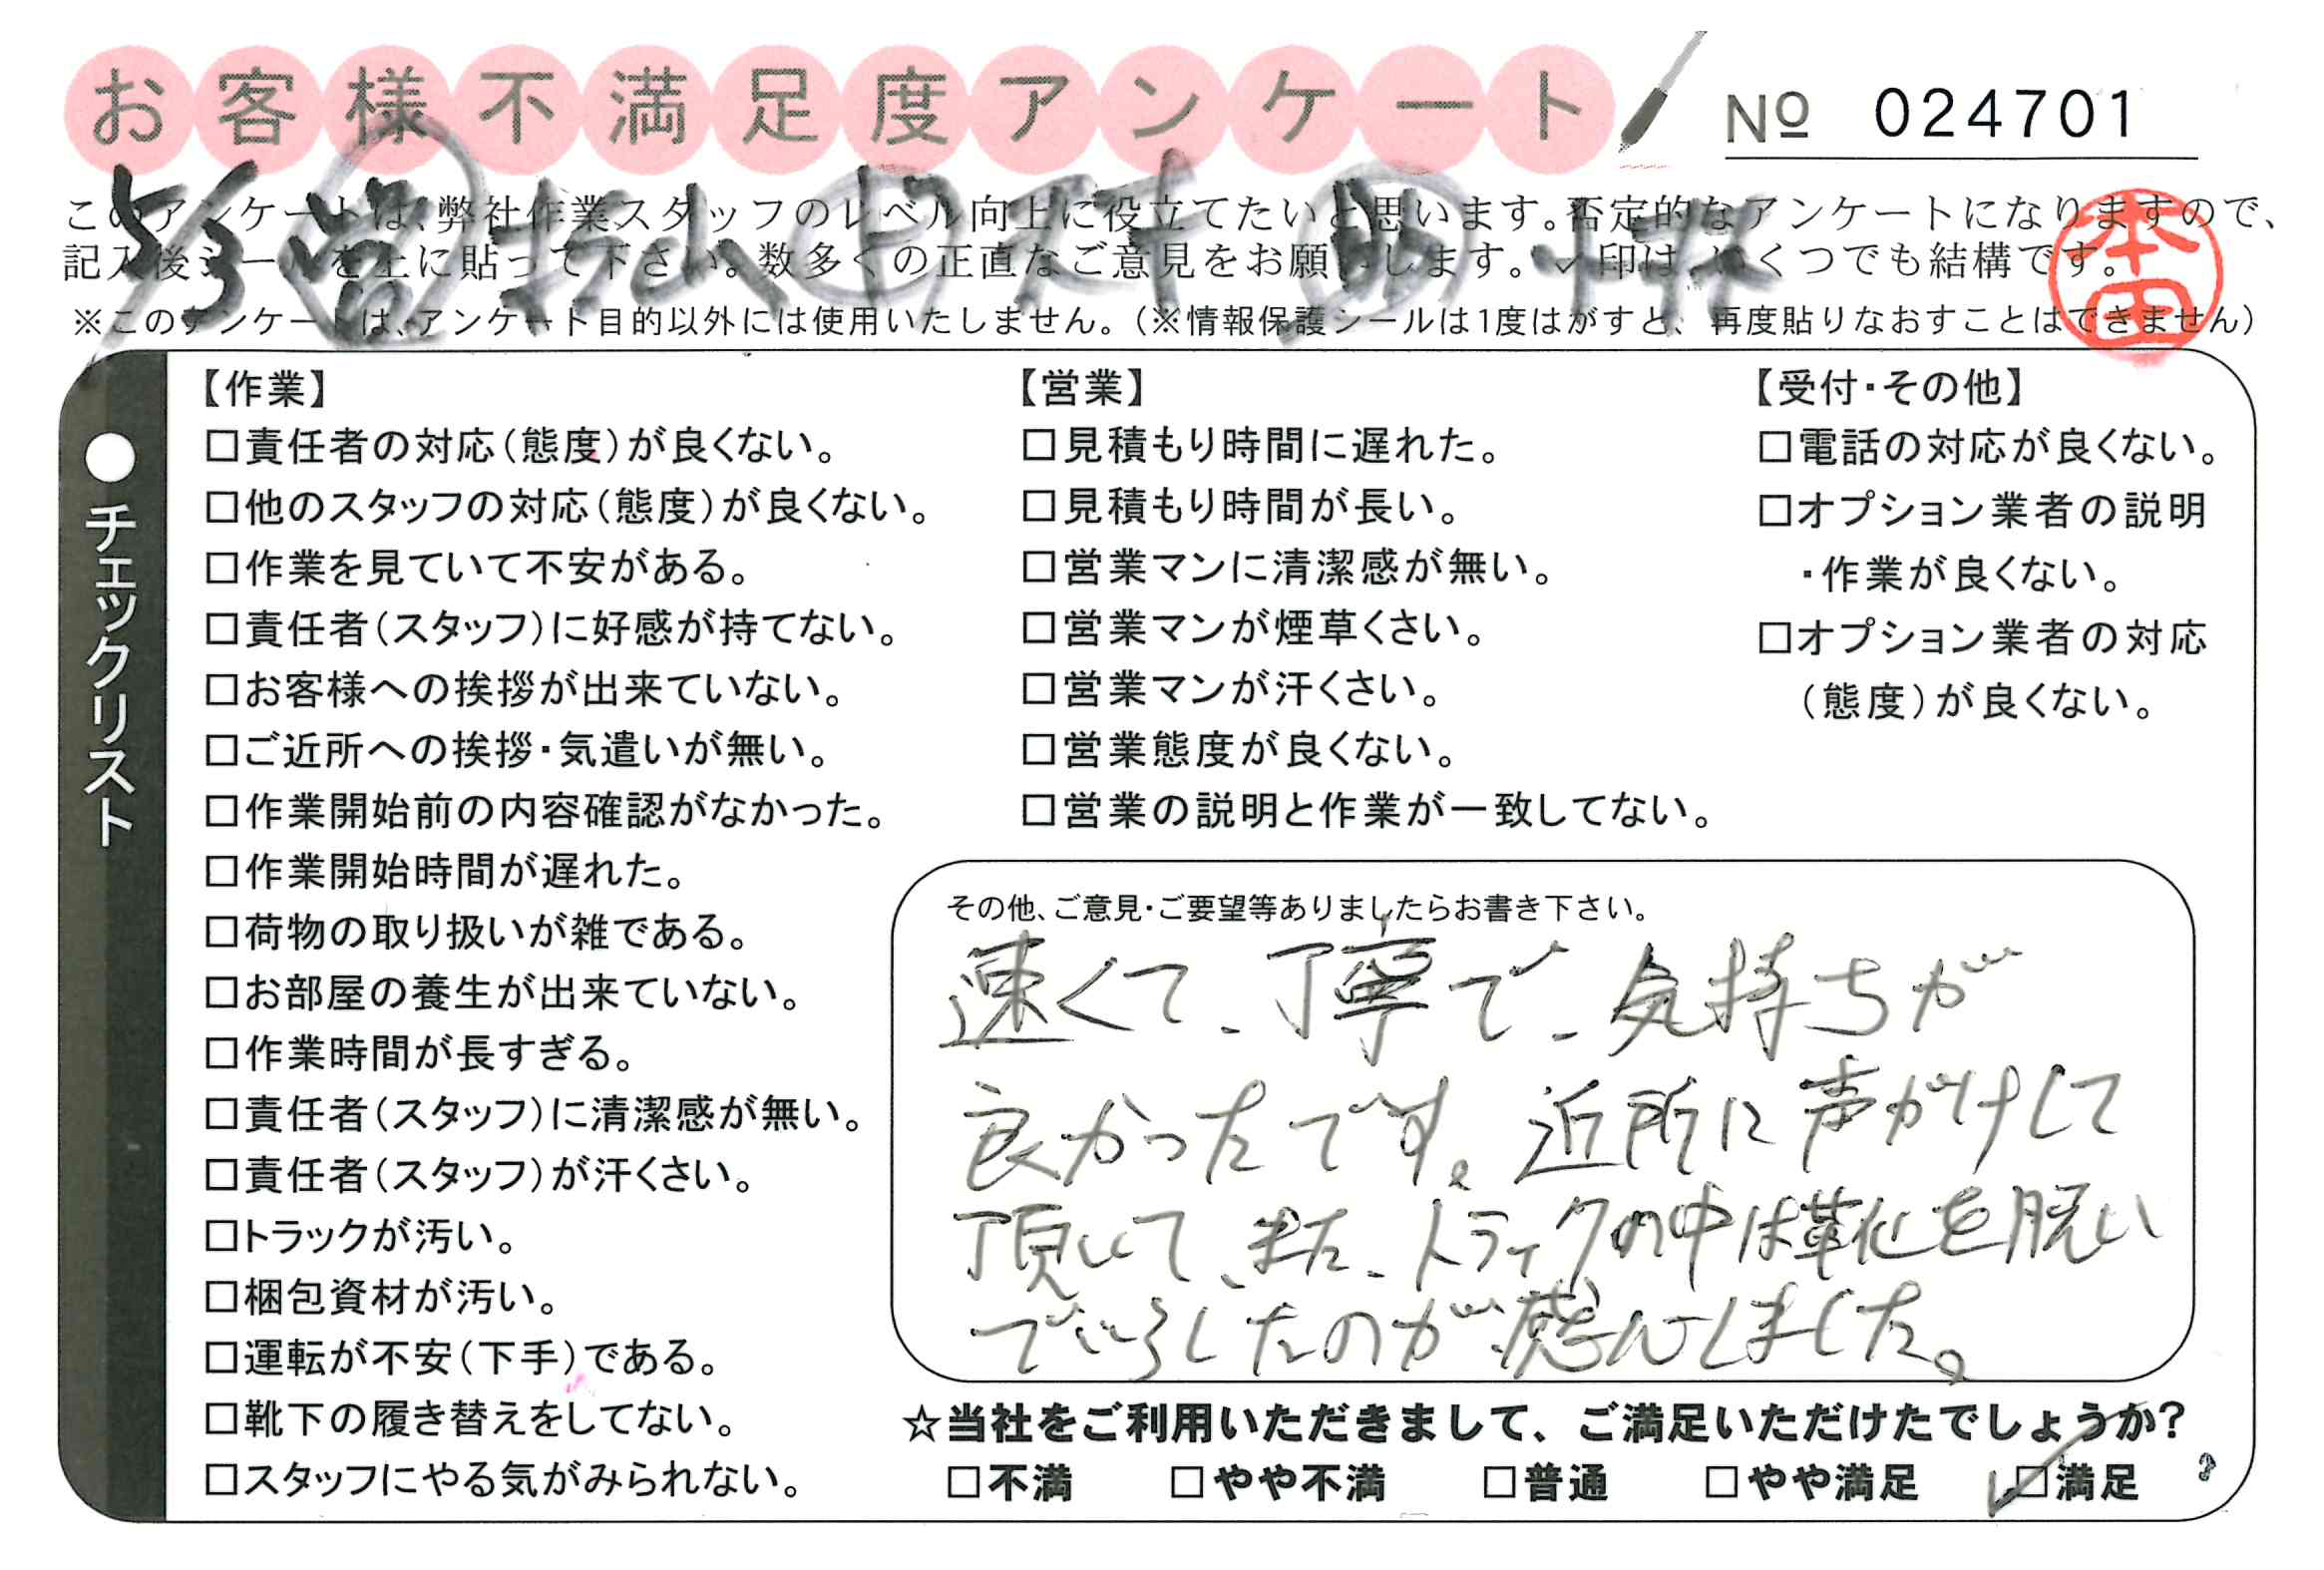 お客様不満足度アンケート
№ 024701
このアンケートは、弊社作業スタッフのレベル向上に役立てたいと思います。否定的なアンケートになりますので、
記入後シールを上に貼って下さい。数多くの正直なご意見をお願いします。✓印は、いくつでも結構です。
※このアンケートは、アンケート目的以外には使用いたしません。(※情報保護シールは1度はがすと、再度貼りなおすことはできません)
5/3
本田
●チェックリスト
【作業】
□責任者の対応(態度)が良くない。
□他のスタッフの対応(態度)が良くない。
□作業を見ていて不安がある。
□責任者(スタッフ)に好感が持てない。
□お客様への挨拶が出来ていない。
□ご近所への挨拶・気遣いが無い。
□作業開始前の内容確認がなかった。
□作業開始時間が遅れた。
□荷物の取り扱いが雑である。
□お部屋の養生が出来ていない。
□作業時間が長すぎる。
□責任者(スタッフ)に清潔感が無い。
□責任者(スタッフ)が汗くさい。
□トラックが汚い。
□梱包資材が汚い。
□運転が不安(下手)である。
□靴下の履き替えをしてない。
□スタッフにやる気がみられない。
【営業】
□見積もり時間に遅れた。
□見積もり時間が長い。
□営業マンに清潔感が無い。
□営業マンが煙草くさい。
□営業マンが汗くさい。
□営業態度が良くない。
□営業の説明と作業が一致してない。
【受付・その他】
□電話の対応が良くない。
□オプション業者の説明
・作業が良くない。
□オプション業者の対応
(態度)が良くない。
その他、ご意見・ご要望等ありましたらお書き下さい。
速くて、丁寧で、気持ちが
良かったです。近所に声がけして
頂いて、また、トラックの中は靴を脱い
でいらしたのが、感心しました。
☆当社をご利用いただきまして、ご満足いただけたでしょうか?
□不満 □やや不満 □普通 □やや満足 ☑満足